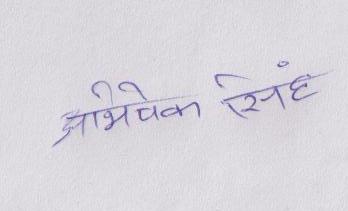 अभिषेक सिंह